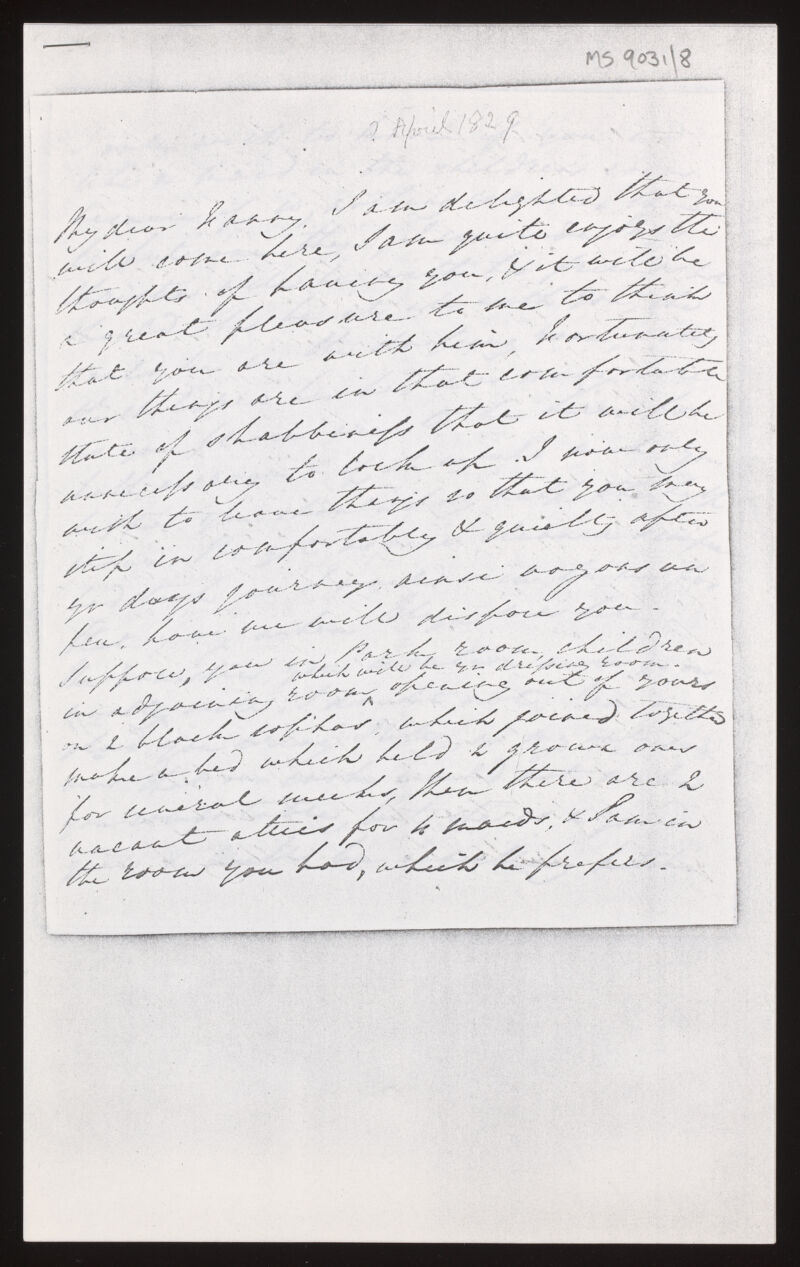 MS 9031/8
? April 1829
My dear Fanny, I am delighted that you
will come here, I am quite enjoys the
thoughts of having you, & it will be
a great pleasure to me to think
that you are with him, Fortunately
our things are in that comfortable
state of shabbiness that it will be
unnecessary to lock up. I now only
wish to leave things so that you may
step in comfortably & quietly after
yr days journey, ainsi voyons un
peu, how we will dispose you.
Suppose, you in Park room, children
which will be yr dressing room.
in adjoining room ^ opening out of yours
on 2 black sophas, which joined together
make a bed which held 2 grown ones
for several weeks, then there are 2
vacant attics for 4 maids, & Sam in
the room you had, which he prefers.